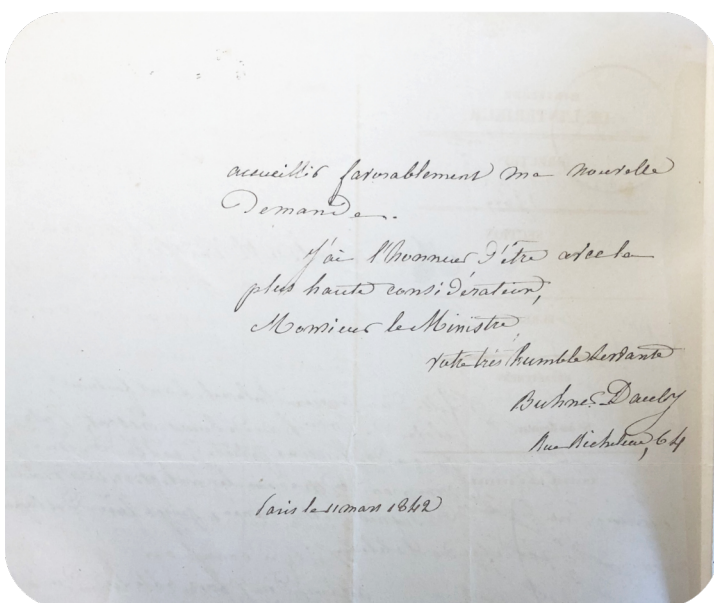 accueillir favorablement ma nouvelle
Demande.
J'ai l'honneur d'être avec la
plus haute considération,
Monsieur le Ministre
votre très humble servante
Rue Richelieu, 64
Paris le 11 mars 1842